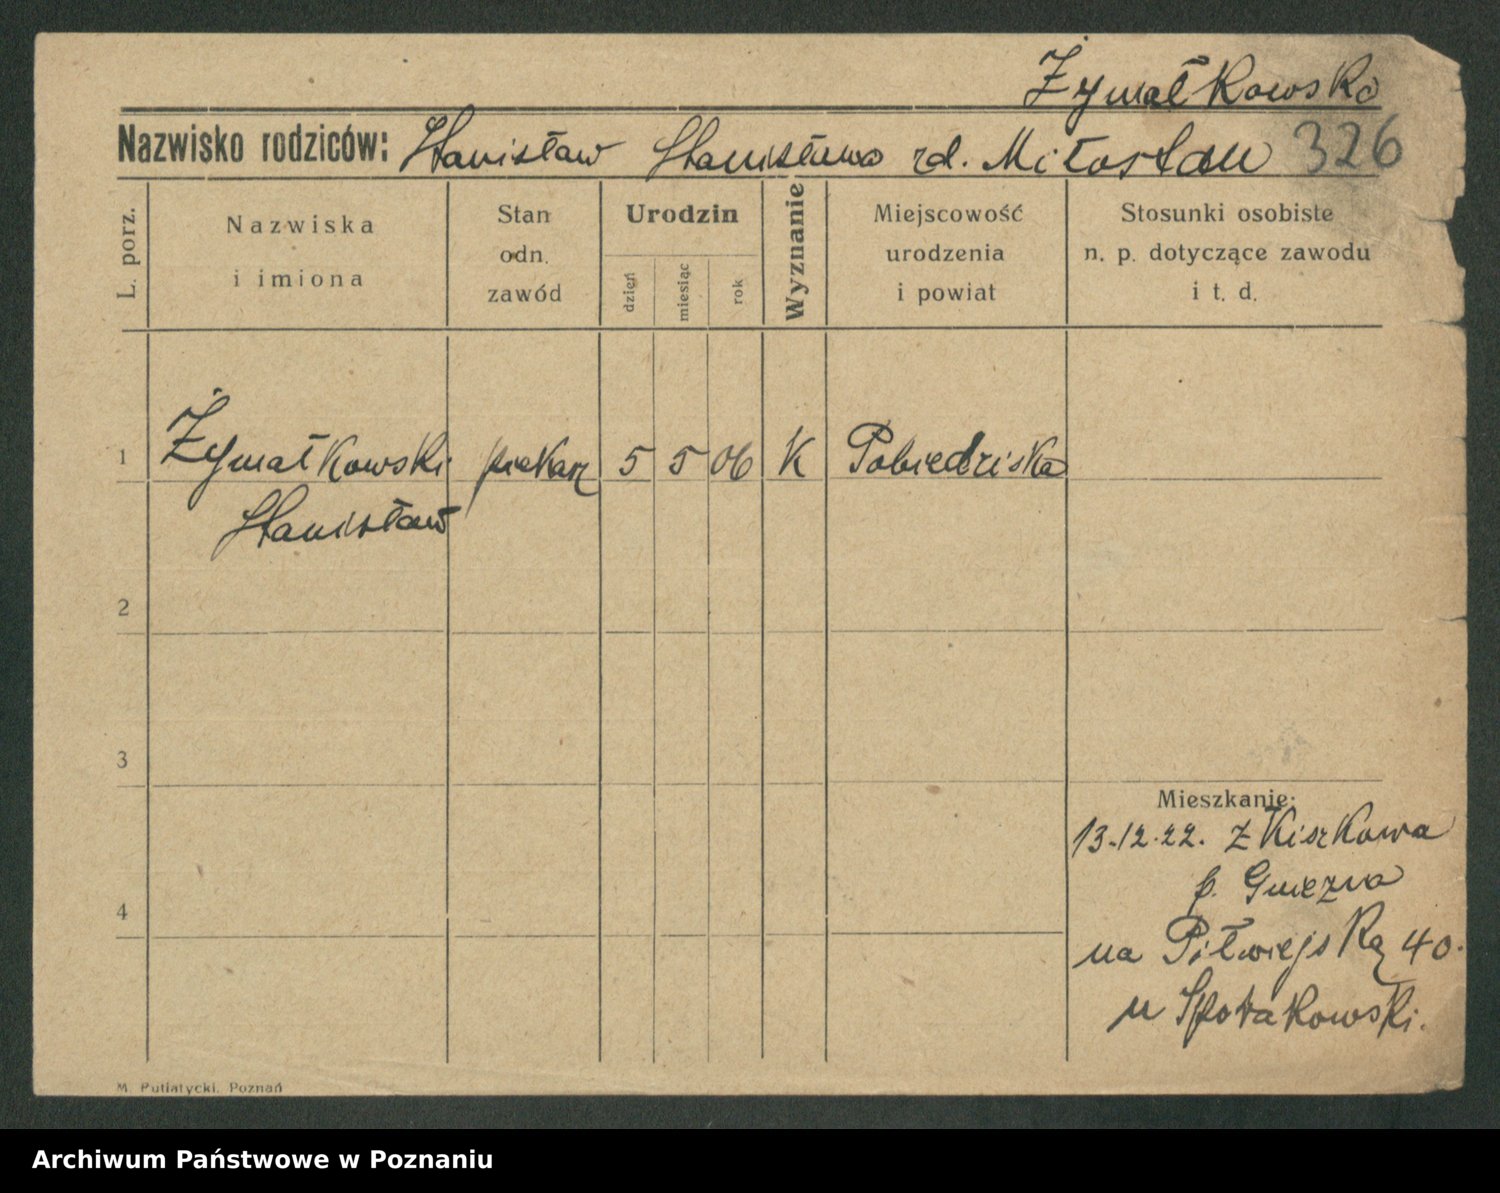 Żymałkowska
Nazwisko rodziców: Stanisław Stanisława zd. Miłostan 326
L. porz.
Nazwiska
i imiona
Stan
odn.
zawód
Urodzin
dzień
miesiąc
rok
Wyznanie
Miejscowość
urodzenia
i powiat
Stosunki osobiste
n. p. dotyczące zawodu
i t. d.
1 Żymałkowski piekarz 5 5 06 K Pobiedziska
Stanisław
2
3
Mieszkanie:
13.12.22. z Kiszkowa
p. Gniezna
4
na Półwiejską 40.
u
M. Putiatycki, Poznań
Archiwum Państwowe w Poznaniu